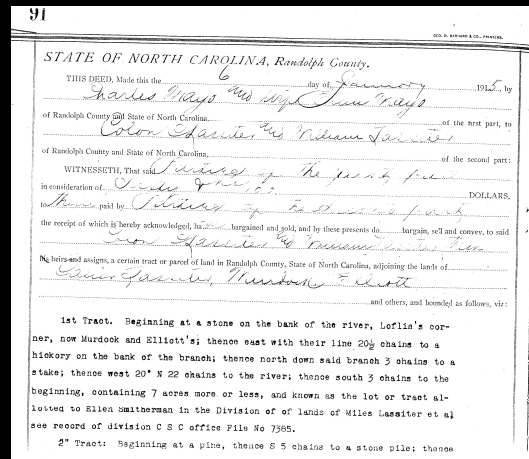 91
GEO. D. BARNARD & CO., PRINTERS.
STATE OF NORTH CAROLINA, Randolph County.
THIS DEED, Made this the 6 day of January 1915, by
Charles Mayo and wife Mayo
of Randolph County and State of North Carolina, of the first part, to
Colon Lassiter and William Lassiter
of Randolph County and State of North Carolina, of the second part:
WITNESSETH, That said Parties of the first part
in consideration of DOLLARS,
to them paid by Parties of
the receipt of which is hereby acknowledged, ha bargained and sold, and by these presents do bargain, sell and convey, to said
Colon Lassiter and
his heirs and assigns, a certain tract or parcel of land in Randolph County, State of North Carolina, adjoining the lands of
Lassiter, Murdock Elliott
and others, and bounded as follows, viz:
1st Tract. Beginning at a stone on the bank of the river, Loflin's cor-
ner, now Murdock and Elliott's; thence east with their line 20½ chains to a
hickory on the bank of the branch; thence north down said branch 3 chains to a
stake; thence west 20° N 22 chains to the river; thence south 3 chains to the
beginning, containing 7 acres more or less, and known as the lot or tract al-
lotted to Ellen Smitherman in the Division of of lands of Miles Lassiter et al
see record of division C S C office File No 7385.
2" Tract: Beginning at a pine, thence S 5 chains to a stone pile; thence